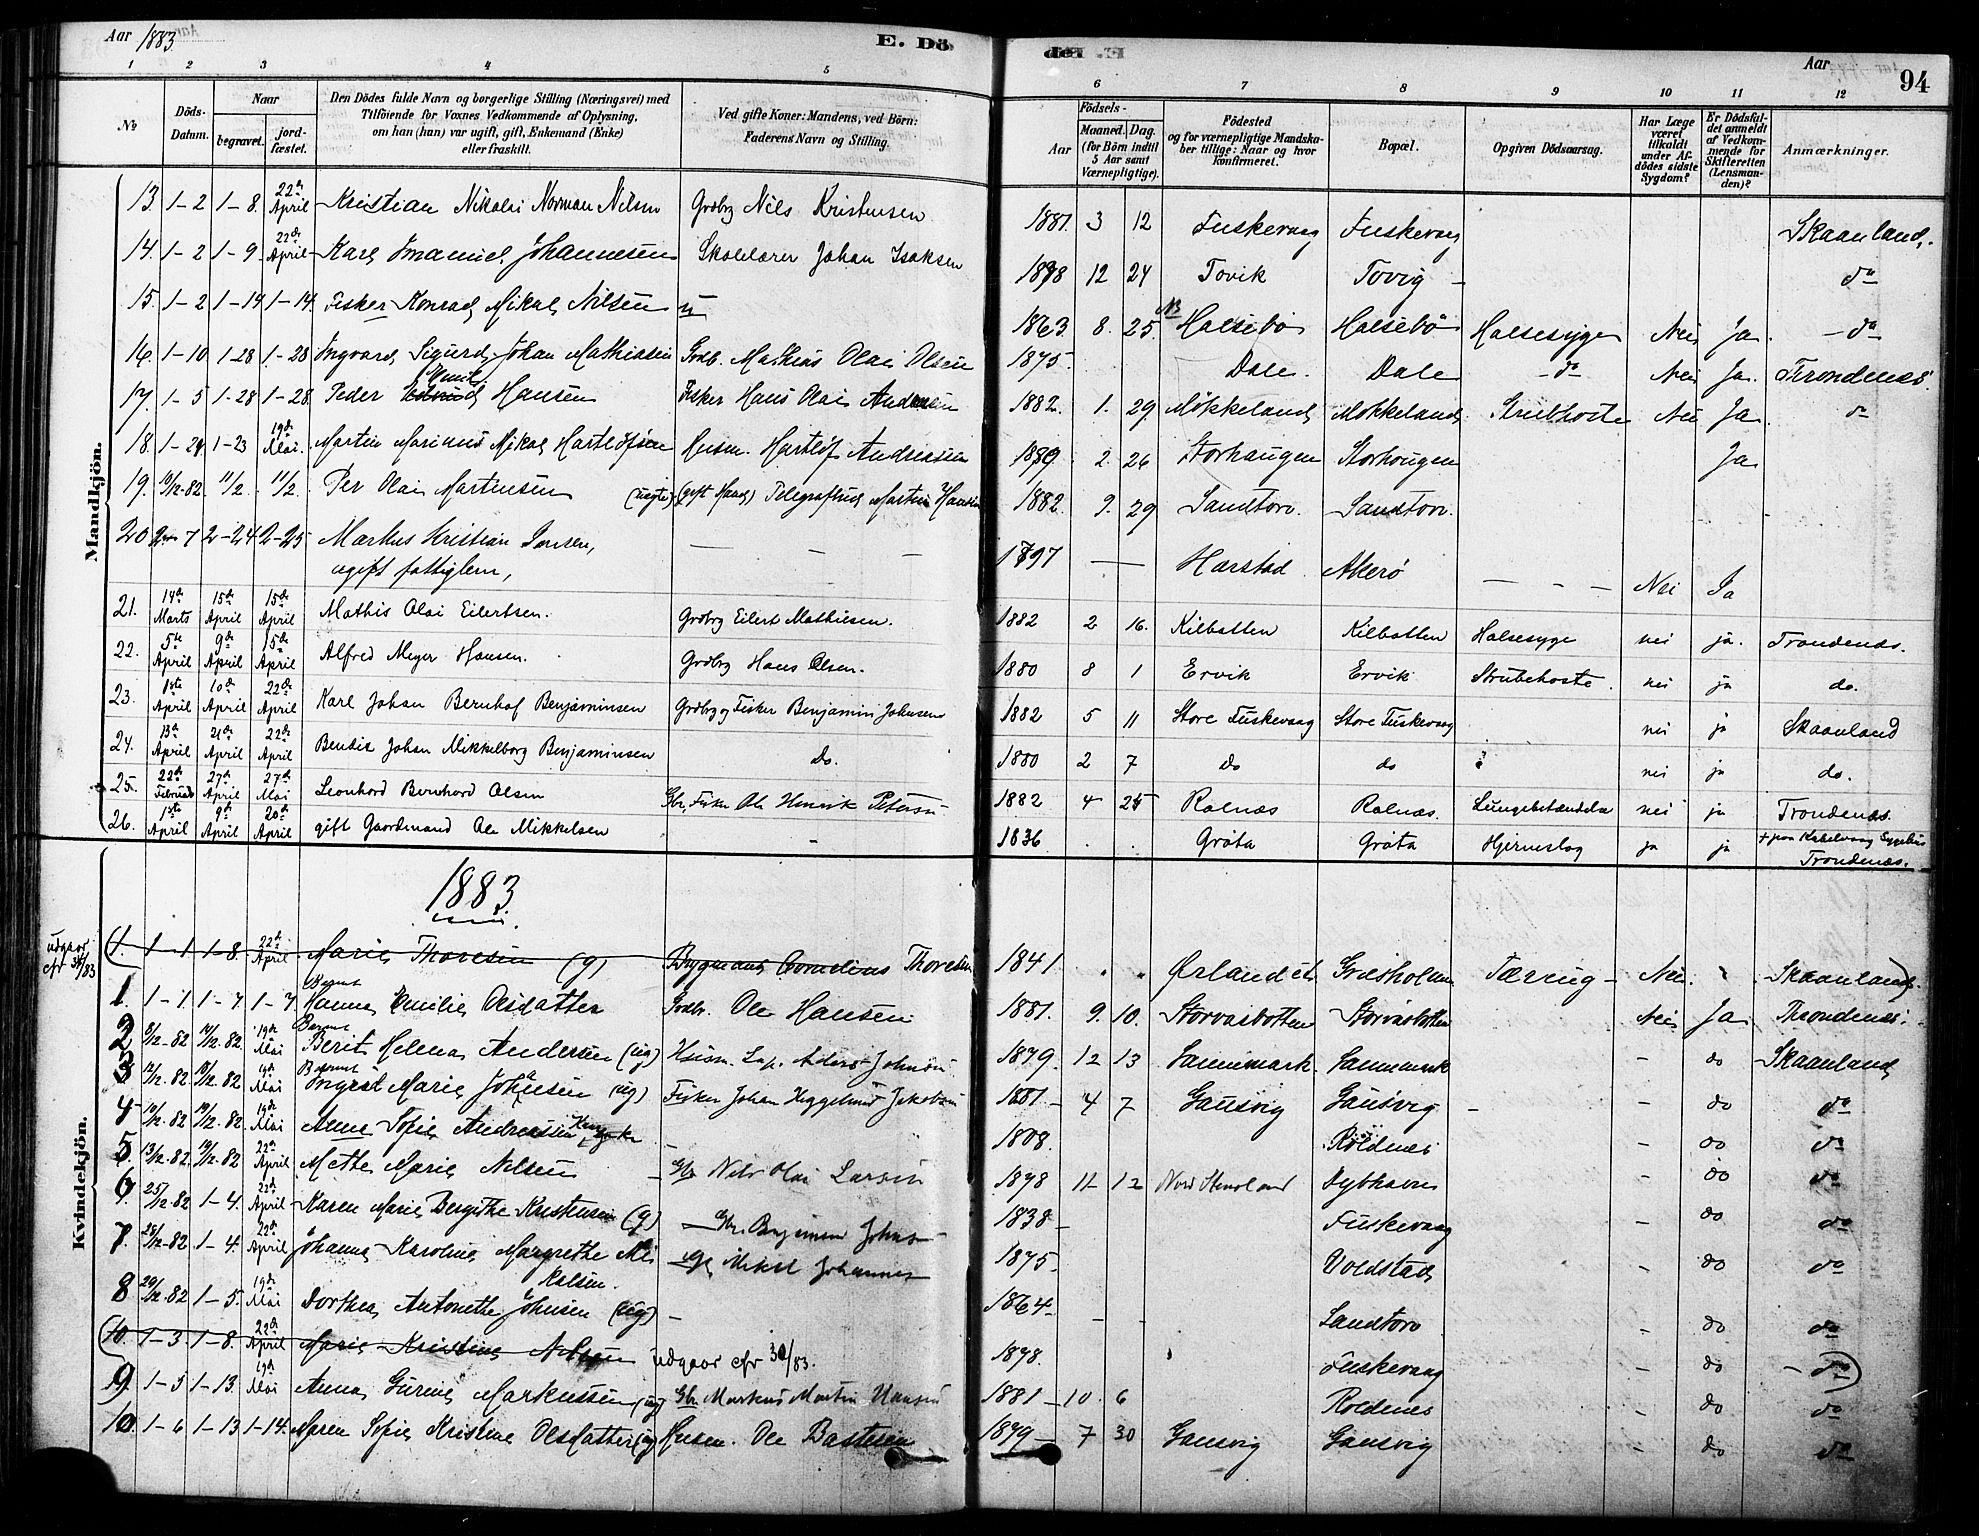 Aar 1883
E. Dö
den E.
Aar
94
1 2 3 4 5 6 7 8 9 10 11 12
No
Döds-Datum.
Naar
begravet.
jord-fæstet.
Den Dödes fulde Navn og borgerlige Stilling (Næringsvei) med
Tilföiende for Voxnes Vedkommende af Oplysning,
om han (hun) var ugift, gift, Enkemand (Enke)
eller fraskilt.
Ved gifte Koner: Mandens, ved Börn:
Faderens Navn og Stilling.
Födsels-
Aar
Maaned. Dag.
(for Börn indtil
5 Aar samt
Værnepligtige).
Födested
og for værnepligtige Mandska-
ber tillige: Naar og hvor
konfirmeret.
Bopæl.
Opgiven Dödsaarsag.
Har Læge
været
tilkaldt
under Af-
dödes sidste
Sygdom?
Er Dödsfal-
det anmeldt
af Vedkom-
mende for
Skifteretten
(Lensman-
den)?
Anmærkninger.
Mandkjön.
13. 1-2 1-8. 22de April Kristian Nikolai Norman Nilsen Grdbrg Nils Kristensen 1881. 3 12 Fuskevaag Fuskevaag Skaanland.
14. 1-2 1-9. 22de April Karl Imanuel Johannesen Skolelærer Johan Isaksen 1878 12 24 Tovik Tovig - do
15. 1-2 1-14 1-14. Fisker Konrad Mikal Nilsen u 1863 8. 25. Halsebö Halsebö Halsesyge Nei Ja. - do
16. 1-10 1-28 1-28 Ingvard Sigurd Johan Mathissen Grdb. Mathias Olai Olsen 1875. Dale. Dale - do Nei Ja. Trondenes.
17. 1-5 1-28 1-28. Peder Emil Hansen Fisker Hans Olai Andersen 1882. 1. 29 Mökkeland Mökkeland Strubhoste Nei Ja. do
18. 1-24 1-23 19de Mai. Martin Marinus Mikal Hartlöfsen Husm. Hartlöf Andreassen 1879. 2. 26 Storhaugen Storhougen Ja
19. 10/12-82. 11/2. 11/2. Per Olai Martinsen (uægte) (gift Mand) Telegrafbud Martin Hansen 1882. 9. 29 Sandtorv. Sandtorv.
20 2-7 2-24 2-25 Markus Kristian Jensen, - - - 1797 - - Harstad Akerö - - - Nei Ja
ugift fattiglem,
21. 14de Marts 15de April 15de April Mathis Olai Eilertsen. Grdbrg Eilert Mathiesen. 1882 2 16. Kilbotten Kilbotten Halsesyge nei ja. Trondenæs.
22. 5te April 9de April 15de April Alfred Meyer Hansen. Grdbrg Hans Olsen. 1880 8 1 Ervik Ervik Strubehoste. nei ja do.
23. 1ste April 10de April 22de April Karl Johan Bernhof Benjaminsen Grdbrg og Fisker Benjamin Johnsen 1882 5 11 Store Fuskevaag Store Fuskevaag nei ja Skaanland
24. 13de April 21de April 22de April Bendix Johan Mikkelborg Benjaminsen do. 1880 2 7 do do nei ja do.
25. 22de Februar 27de April 27de Mai Leonhard Bernhard Olsen Gbr. Fisker Ole Henrik Petersen 1882 4 25 Rolnæs Rolnæs. Lungebetændelse nei ja Trondenæs.
26. 1ste April 9de April 20de April gift Gaardmand Ole Mikkelsen - 1836 . . Gröta Gröta Hjerneslag ja ja + paa Kabelvaag Sygehus
Trondenæs.
1883
Kvindekjön.
udgaar cfr 30/83
(1. 1-1 1-8. 22de April Marie Thoresen (g) Bygmand Cornelius Thoresen 1841 " " Ørlandet Græsholmen Tæring - Nei. Skaanland)
1. 1-1. 1-7 1-7 Barnet Hanna Emilie Olsdatter Grdbr. Ole Hansen 1881. 9. 10. Storvasbotten Storvasbotten Nei Ja Throndenæs.
2 82 82. 19de Mai Barnet Berit Helena Andersen (ug) Husm. Lap. Anders Johnsen 1879. 12 13 Sannemark. Sannemark - do Skaanland
3 82 82 19de Mai Barnet Ingrid Marie Johansen (ug) Fisker Johan Heggelund Jakobsen 1881 - 4 7 Gausvig Gausvig - - do do
4 82 82. 19de Mai Anne Sofie Andreassen - 1808. Roldnes - do do
5. 13/12-82. 19/12-82 22de April Mette Marie Nilsen - Gbr Nils Olai Larsen 1878 11-12 Nord Dybhavn - do do
6. 25/12-82 1-4. 22de April Karen Marie Bergithe Kristensen (g) - Gbr. Benjamin Johnsen 1838 - Fuskevaag - do do
7. 82 1-4. 22de April Johanna Karoline Margrethe Mikalsen. Gbr Mikal Johannes 1875. Voldstad - do do
8 29/12-82 1-5. 19de Mai Dorthea Antonethe Johnsen (ug) - 1864 - - - Sandtorv - do do
(10. 1-3 1-8. 22de April Marie Kristine Nilsen udgaar cfr 30/83. 1878. Fuskevaag - do - do)
9 1-5 1-13. 19de Mai Anna Gurine Markussen (ug) Gbr Markus Martin Hansen 1881 - 10. 6 Roldnes - do do
10. 1-6 1-13 1-14. Maren Sofie Kristine Olsdatter (ug) Husm. Ole Bastesen 1879 - 7 30 Gausvig Gausvig - do do